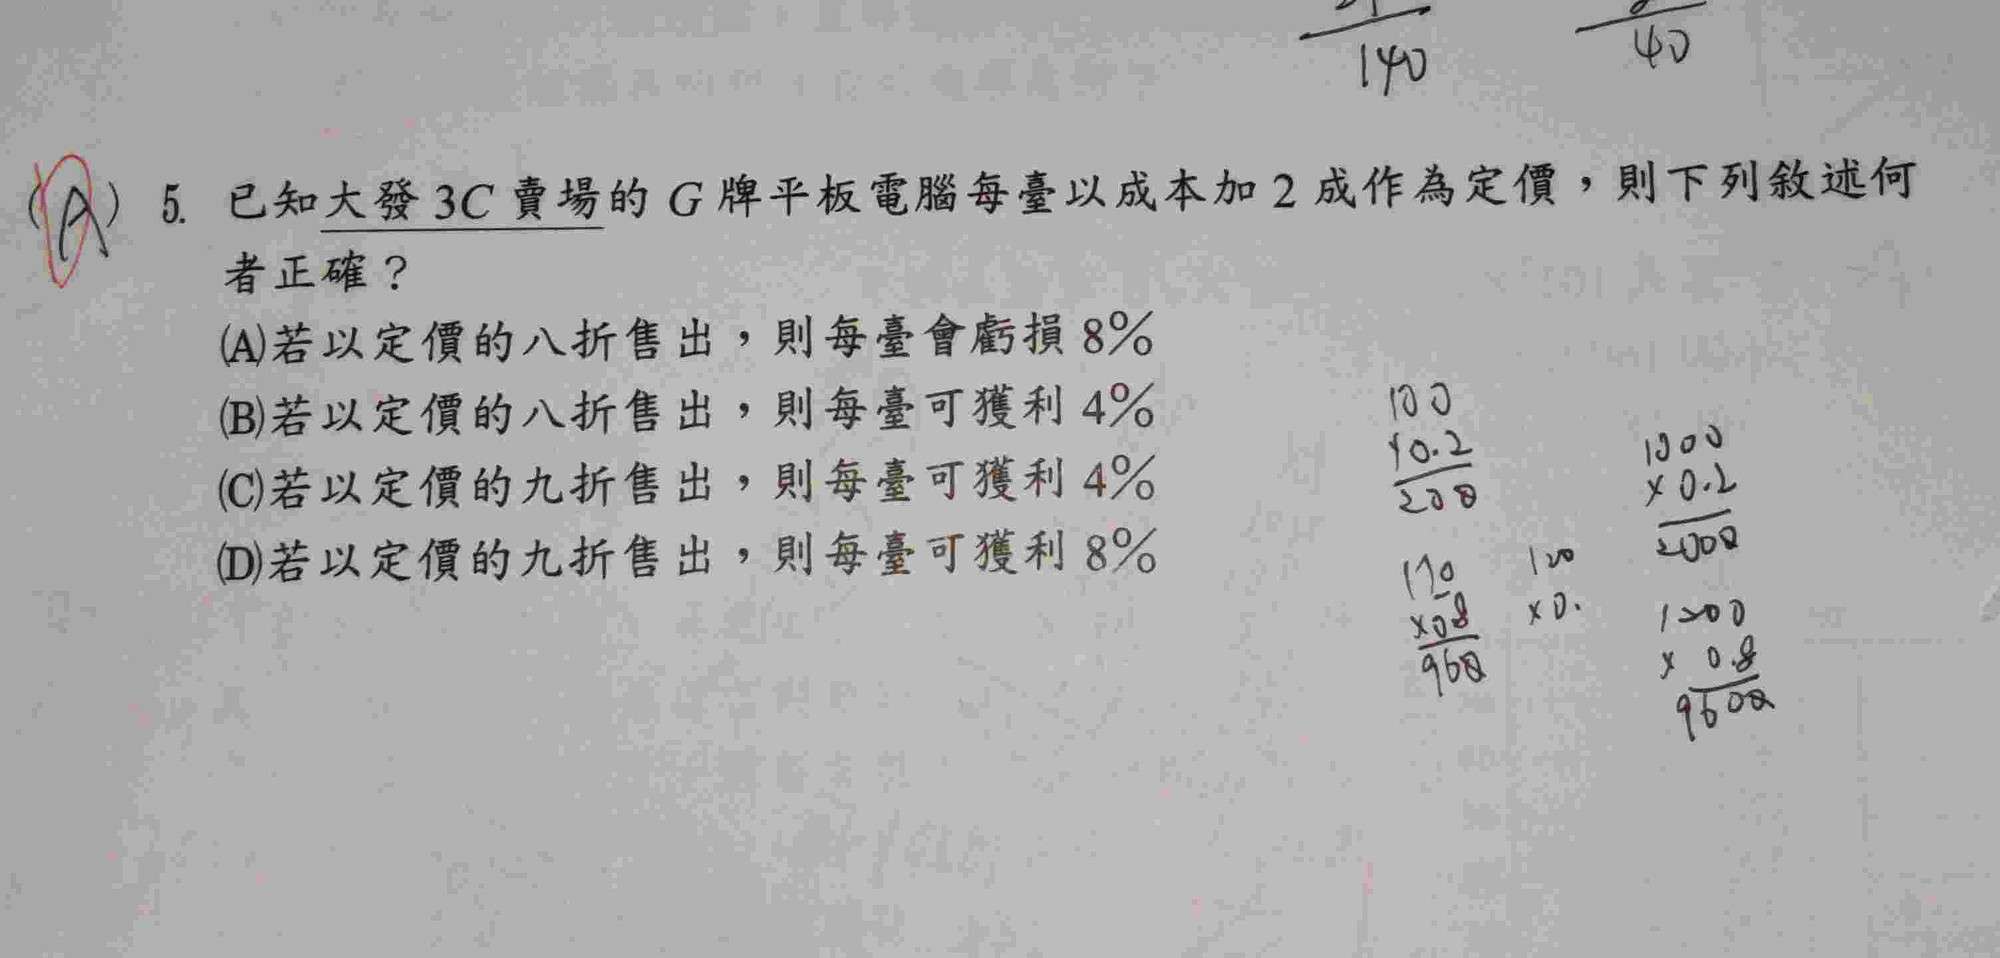 140
40
(A) 5. 已知大發3C賣場的G牌平板電腦每臺以成本加2成作為定價，則下列敘述何
者正確？
(A)若以定價的八折售出，則每臺會虧損8%
(B)若以定價的八折售出，則每臺可獲利4%
(C)若以定價的九折售出，則每臺可獲利4%
(D)若以定價的九折售出，則每臺可獲利8%
100
×0.2
200
1000
×0.2
2000
120
×08
960
120
×0.
1200
× 0.8
9600